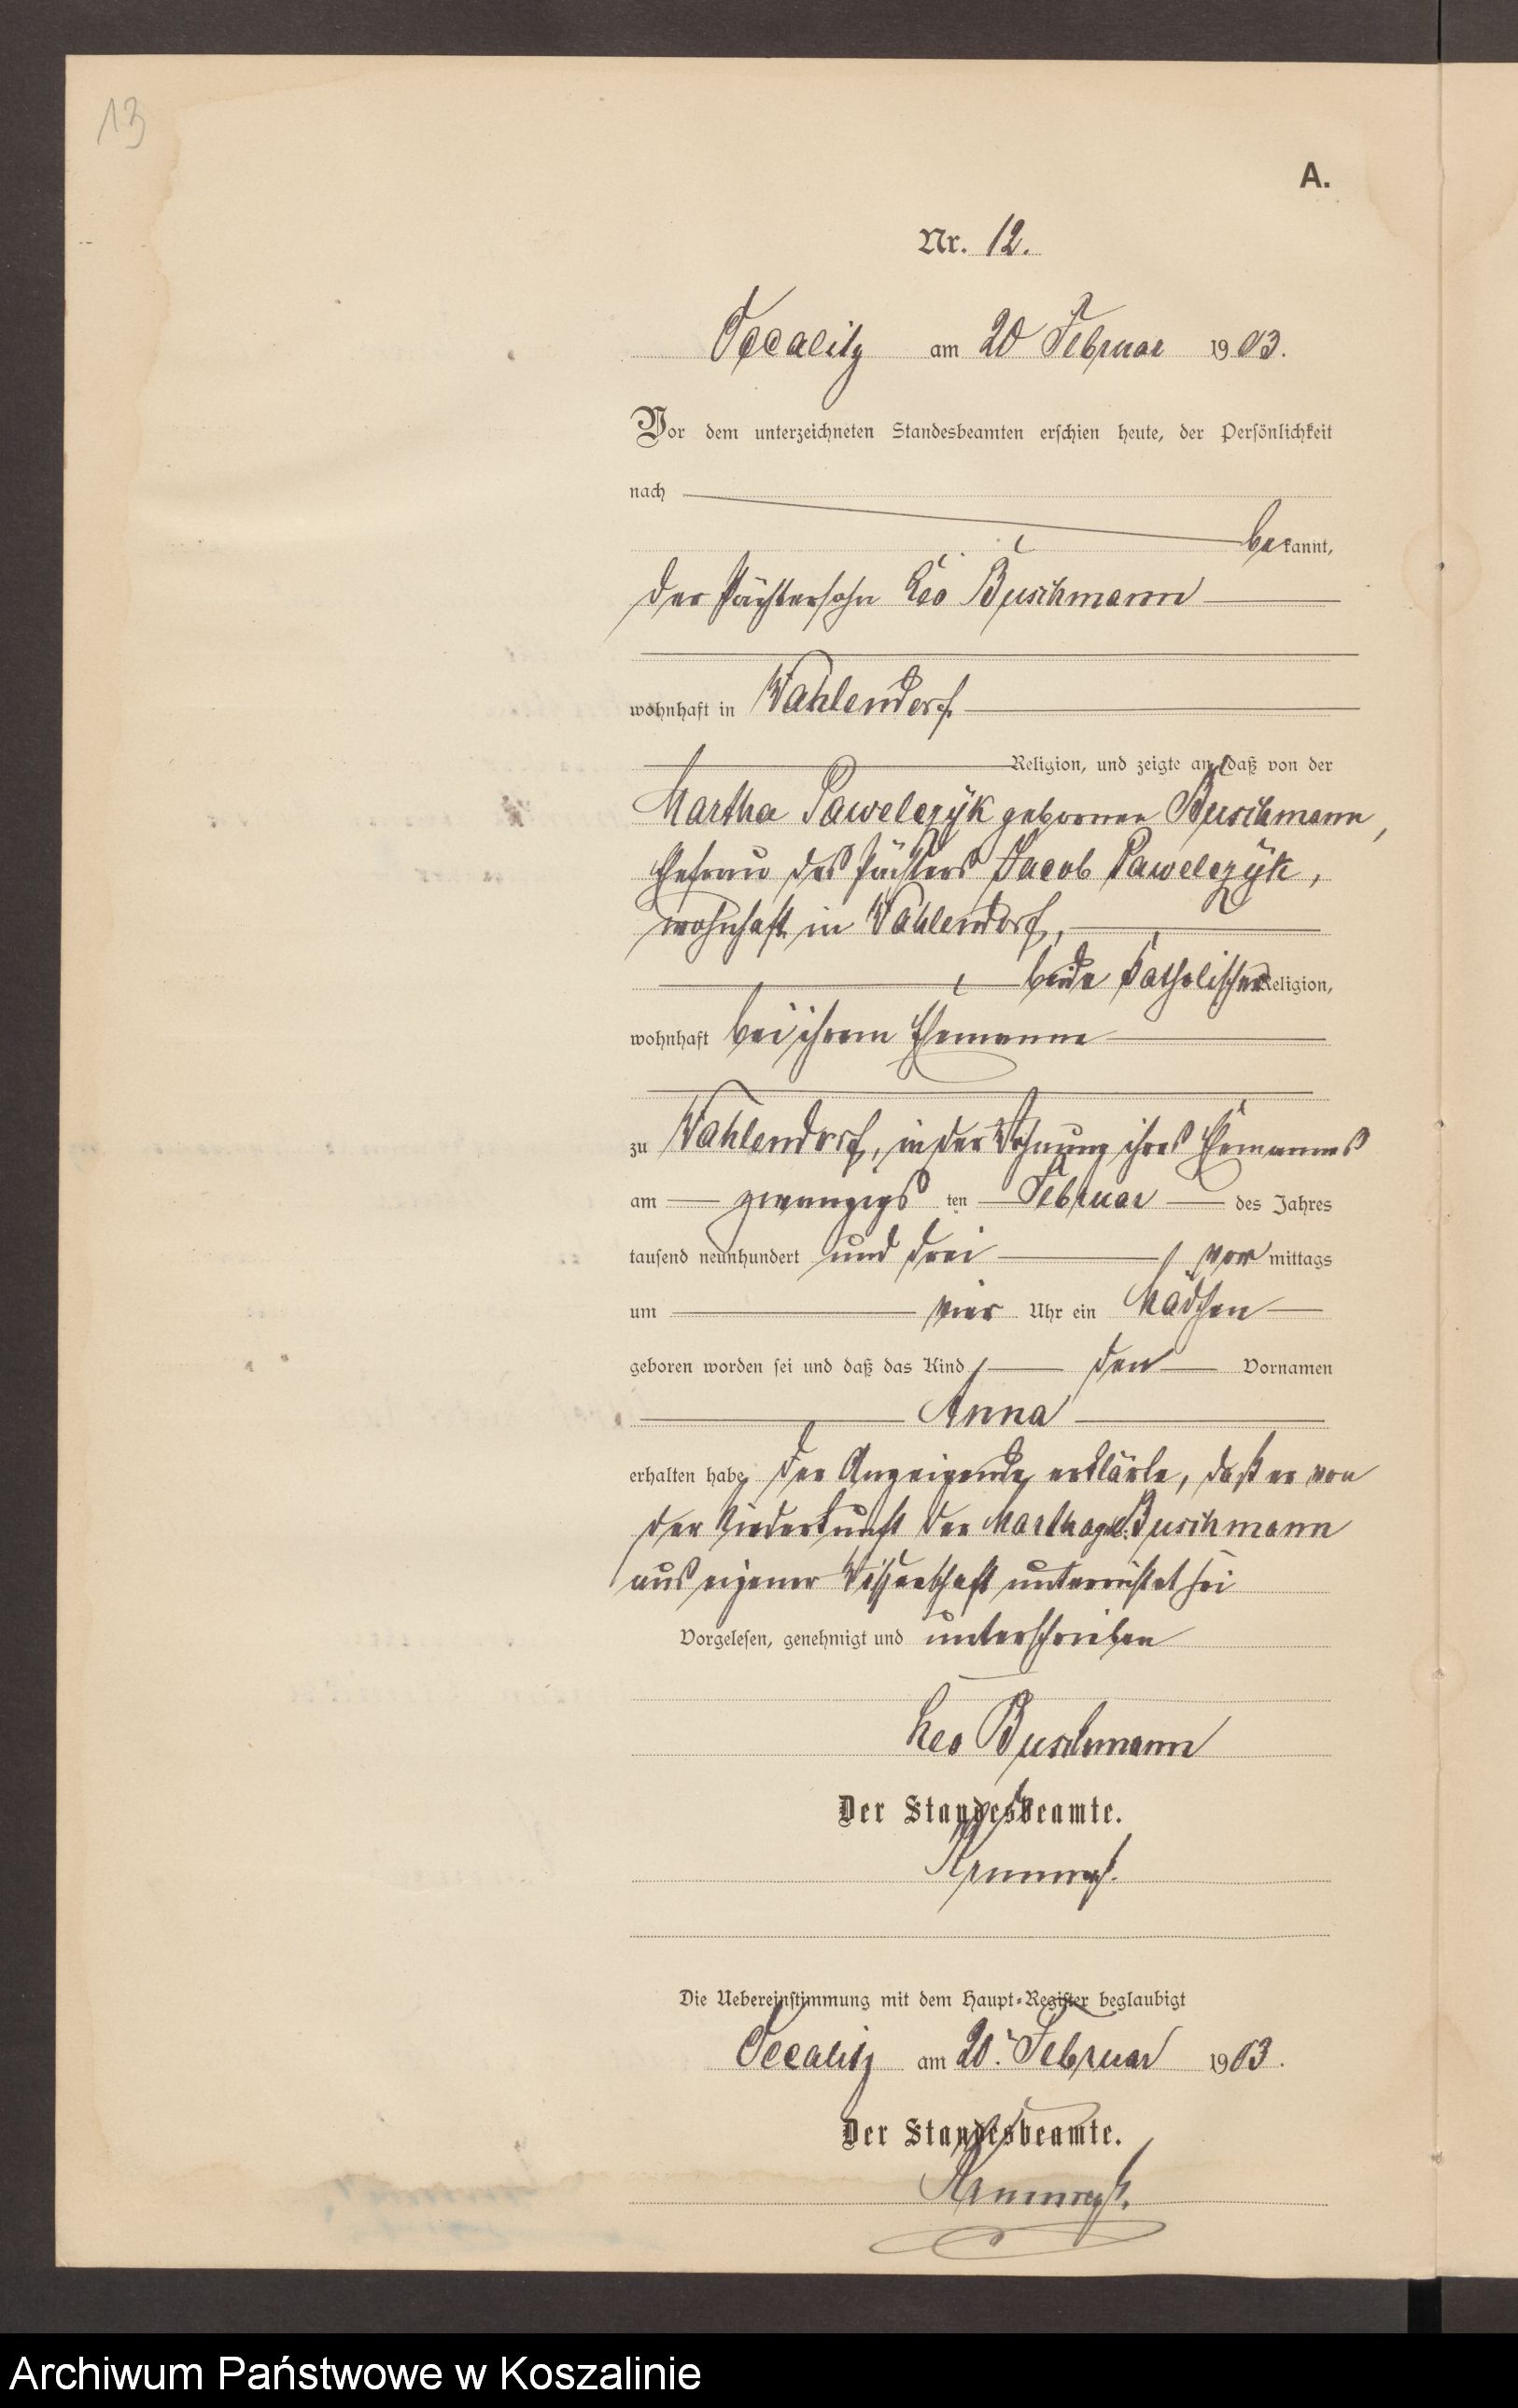 13
A.
Nr. 12.
Occalitz am 20 Februar 1903.
Vor dem unterzeichneten Standesbeamten erschien heute, der Persönlichkeit
nach
bekannt,
der Pächtersohn Leo Buschmann
wohnhaft in Wahlendorf
Religion, und zeigte an, daß von der
Martha Pawelczyk geborenen Buschmann,
Ehefrau des Pächters Jacob Pawelczyk,
wohnhaft in Wahlendorf,
beide katholischer Religion,
wohnhaft bei ihrem Ehemanne
zu Wahlendorf, in der Wohnung ihres Ehemannes
am zwanzigs ten Februar des Jahres
tausend neunhundert und drei, vor mittags
um vier Uhr ein Mädchen
geboren worden sei und daß das Kind den Vornamen
Anna
erhalten habe. Der Anzeigende erklärte, daß er von
der Niederkunft der Martha geb. Buschmann
aus eigener Wissenschaft unterrichtet sei
Vorgelesen, genehmigt und unterschrieben
Leo Buschmann
Der Standesbeamte.
Die Uebereinstimmung mit dem Haupt-Register beglaubigt
Occalitz am 20. Februar 1903.
Der Standesbeamte.
Archiwum Państwowe w Koszalinie